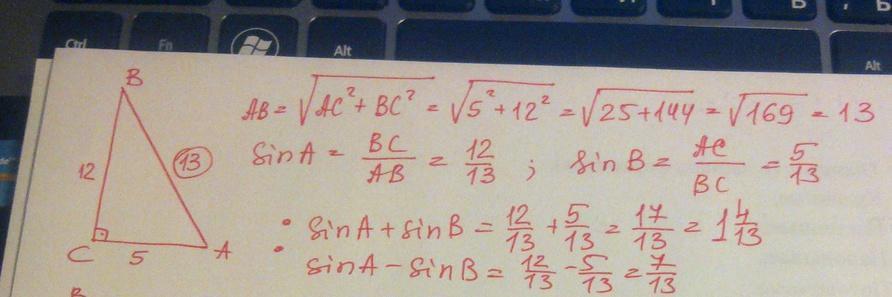 Ctrl Fn Alt Alt
B
12 13
C 5 A
AB = √AC² + BC² = √5² + 12² = √25+144 = √169 = 13
sin A = BC/AB = 12/13 ; sin B = AC/BC = 5/13
: sin A + sin B = 12/13 + 5/13 = 17/13 = 1 4/13
sin A - sin B = 12/13 - 5/13 = 7/13
B